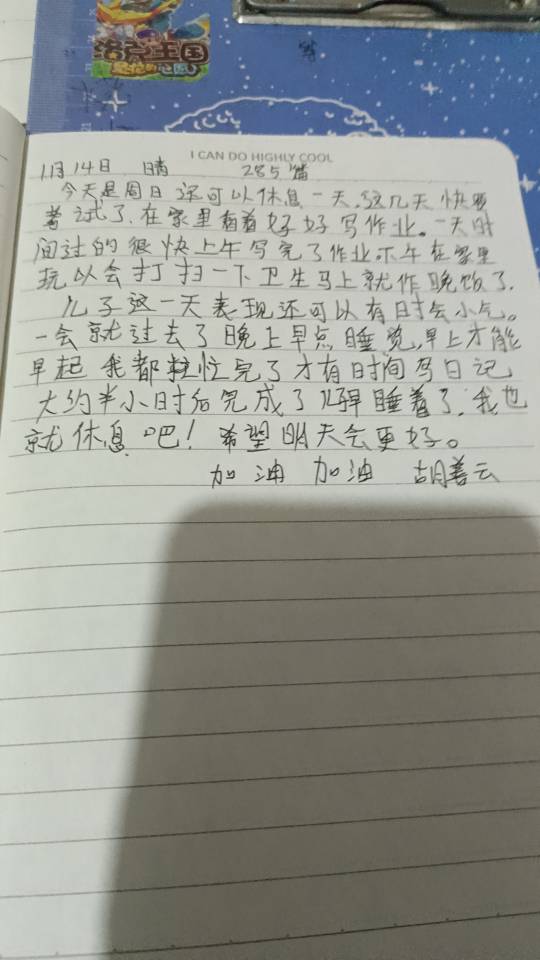 洛克王国
I CAN DO HIGHLY COOL
1月14日 晴 285篇
今天是周日还可以休息一天.这几天快要
考试了.在家里看着好好写作业。一天时
间过的很快上午写完了作业下午在家里
玩以会打扫一下卫生马上就作晚饭了.
儿子这一天表现还可以有时会小气。
一会就过去了晚上早点睡觉,早上才能
早起 我都忙完了才有时间写日记
大约半小时后完成了 睡着了.我也
就休息吧！希望明天会更好。
加油 加油 胡善云